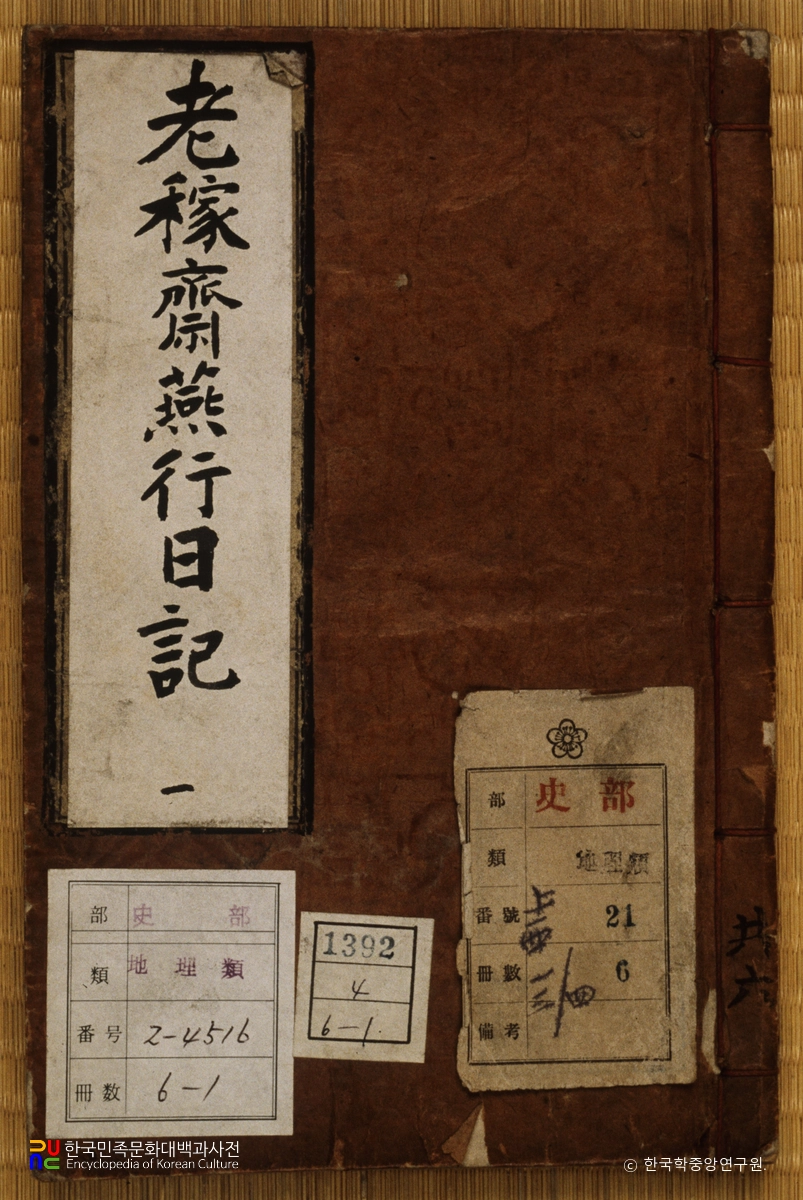 老稼齋燕行日記
一
部 史部
類 地理類
番號 21
冊數 6
備考
共六
部 史部
類 地理類
番号 2-4516
冊数 6-1
1392
4
6-1
한국민족문화대백과사전
Encyclopedia of Korean Culture
© 한국학중앙연구원